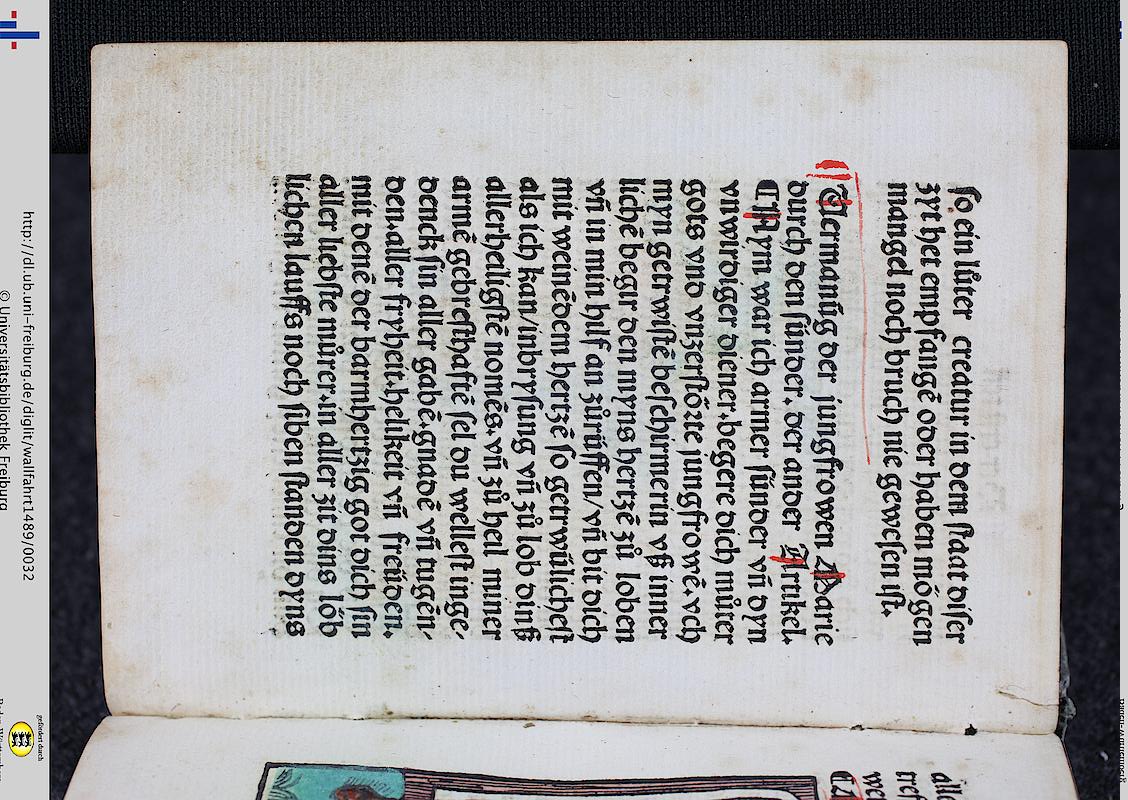 so ein lůter creatur in dem stadt diser
zyt het empfangē oder haben mögen
mangel noch bruch nie gewesen ist.
Uermanūg der jungfrowen Marie
durch den sünder. der ander Artikel.
Nym war ich armer sünder vñ dyn
vnwirdiger diener. begere dich můter
gots vnd vnzerstörte jungfrowē. vch
myn getrwistē beschirmerin vß inner
lichē begir den myns hertzē zů loben
vñ in min hilf an zůrůffen/vñ bit dich
mit weinēdem hertzē so getrwlichest
als ich kan/inbrysung vñ zů lob dinß
allerheiligstē nomēs. vñ zů heil miner
armē gebresthaftē sel du wellest inge-
denck sin aller gabē. gnadē vñ tugen-
den. aller fryheit. hellikeit vñ freüden.
mit denē der barmhertzig got dich sin
aller liebste můter. in aller zit dins löb
lichen lauffs noch siben standen dyns
http://dl.ub.uni-freiburg.de/diglit/wallfahrt1489/0032
© Universitätsbibliothek Freiburg
gefördert durch
alle
tref
we